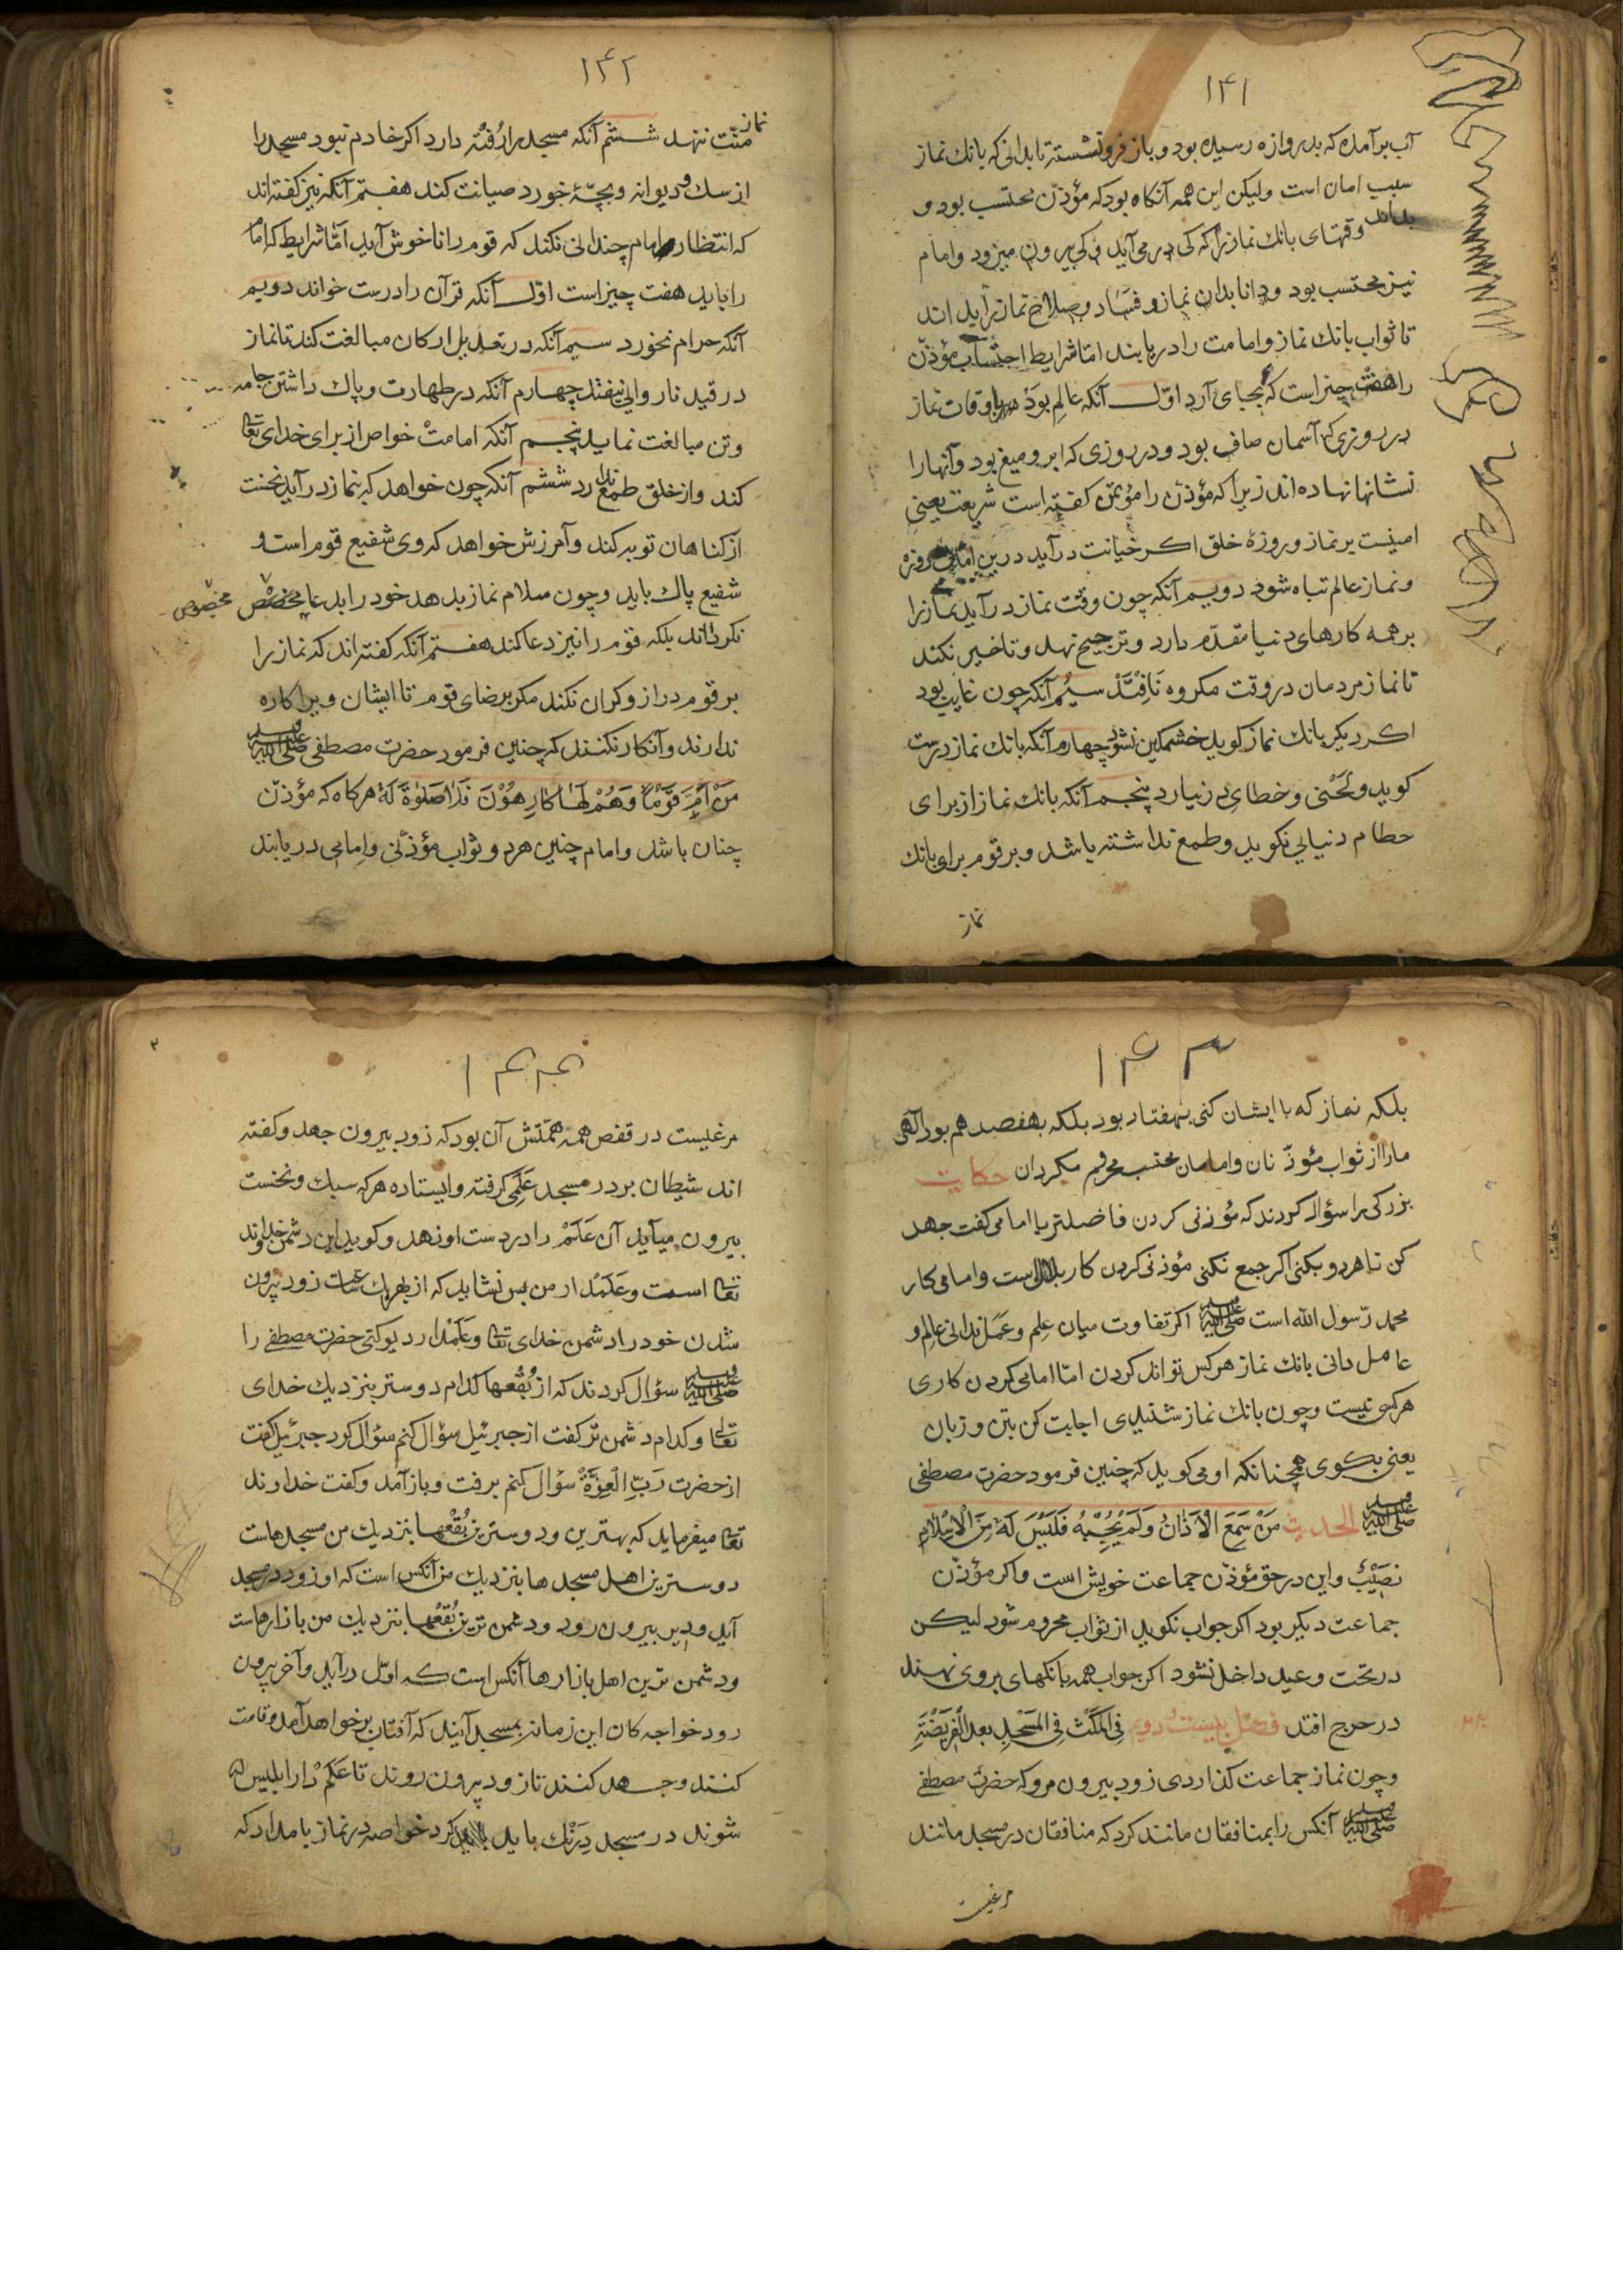 ۱۴۱
آب برآمده که بدروازه رسیده بود و باز فرونشسته تا بدانی که بانك نماز
سبب امان است ولیکن این همه آنکاه بود که مؤذّن محتسب بود و
بداند وقتهای بانك نماز را که کی درمی آید و کی بیرون میرود وامام
نیز محتسب بود ودانا بدان نماز و فساد وصلاح نماز را بداند
تا ثواب بانك نماز وامامت را دریابند امّا شرایط احتساب مؤذّن
را هفت چیزاست که بجای آرد اوّل آنکه عالم بود باوقات نماز
در روزی که آسمان صاف بود ودر روزی که ابر ومیغ بود وآنها را
نشانها نهاده اند زیرا که مؤذّن را مؤتمن کفته است شریعت یعنی
امینست بر نماز وروزهٔ خلق اکر خیانت درآید درین روزه
ونماز عالم تباه شود دویم آنکه چون وقت نماز درآید نماز را
برهمه کارهای دنیا مقدّم دارد وترجیح نهد وتاخیر نکند
تا نماز مردمان در وقت مکروه نَافِتَدْ سیُم آنکه چون غایب بود
اکر دیکر بانك نماز کوید خشمکین نشود چهارم آنکه بانك نماز درست
کوید ولَحْنی وخطای در نیارد پنجم آنکه بانك نماز از برای
حطام دنیایی نکوید وطمع نداشته باشد وبر قوم برای بانك
نماز
۱۴۲
نماز
منّت ننهد ششم آنکه مسجد را رُفْته دارد اکر خادم نبود مسجد را
از سك و دیوانه وبچّهٔ خورد صیانت کند هفتم آنکه نیز کفته اند
که انتظار امام چندانی نکند که قوم را ناخوش آید امّا شرایط که امام
را باید هفت چیز است اوّل آنکه قرآن را درست خواند دویم
آنکه حرام نخورد سیم آنکه در تعدیل ارکان مبالغت کند تا نماز
در قید ناروایی نیفتد چهارم آنکه در طهارت وپاك داشتن جامه
وتن مبالغت نماید پنجم آنکه امامتْ خواص از برای خدای تعالی
کند واز خلق طمع ندارد ششم آنکه چون خواهد که بنماز درآید نخست
از کناهان توبه کند وآمرزش خواهد که وی شفیع قوم است و
شفیع پاك باید وچون سلام نماز بدهد خود را بدعا مخصّص مخصوص
نکرداند بلکه قوم را نیز دعا کند هفتم آنکه کفته اند که نماز را
بر قوم دراز وکران نکند مکر برضای قوم تا ایشان ویرا کاره
ندارند وآنکار نکنند که چنین فرمود حضرت مصطفی صلی الله علیه وسلم
مَنْ اَمَّ قَوْمًا وَهُمْ لَهَا كَارِهُوْنَ فَلَا صَلٰوةَ لَهُ هرکاه که مؤذّن
چنان باشد وامام چنین هردو ثواب مؤذّنی وامامی دریابند
۱۴۳
بلکه نماز که با ایشان کنی بهفتاد بود بلکه بهفصد هم بود الٓهی
ما را از ثواب مؤذّنان وامامان محتسب محروم مکردان حکایت
بزرکی را سؤال کردند که مؤذنی کردن فاضلتر یا امامی کفت جهد
کن تا هردو بکنی اکر جمع نکنی مؤذنی کردن کار بلال است وامامی کار
محمد رّسول الله است صلی الله علیه وسلم اکر تفاوت میان عِلم وعَمَل ندانی عالِم و
عامل دانی بانك نماز هرکس تواند کردن امّا امامی کردن کاری
هرکسی نیست وچون بانك نماز شنیدی اجابت کن بتن وزبان
یعنی بکوی همچنانکه او می کوید که چنین فرمود حضرت مصطفی
صلی الله علیه وسلم الحدیث مَنْ سَمِعَ الْاَذَانَ وَلَمْ يُجِبْهُ فَلَيْسَ لَهُ مِنَ الْاِسْلَامِ
نَصِيْبٌ واین در حق مؤذّن جماعت خویش است واکر مؤذّن
جماعت دیکر بود اکر جواب نکوید از ثواب محروم شود لیکن
در تحت وعید داخل نشود اکر جواب همه بانکهای بروی نهند
در حرج افتد فصل بیست دویم فِی الْمَكْثِ فِی الْمَسْجِدِ بعد الْفَرِيْضَةِ
وچون نماز جماعت کذاردی زود بیرون مرو که حضرت مصطفی
صلی الله علیه وسلم آنکس را بمنافقان مانند کرد که منافقان در مسجد مانند
مرغیست
۱۴۴
مرغیست در قفص همه همّتش آن بود که زود بیرون جهد وکفته
اند شیطان بر در مسجد عَلَمی کرفته وایستاده هرکه سبك ونخست
بیرون میآید آن عَلَمْ را در دست او نهد وکوید این دشمن خداوند
تعالی است وعَلَمْدار من پس نشاید که از بهر یك ساعت زود بیرون
شدن خود را دشمن خدای تعالی وعَلَمْدار دیو کنی حضرت مصطفی را
صلی الله علیه وسلم سؤال کردند که از بُقْعها کدام دوستر بنزدیك خدای
تعالی وکدام دشمن تر کفت از جبرئیل سؤال کنم سؤال کرد جبرئیل کفت
از حضرت رَبِّ الْعِزَّةْ سؤال کنم برفت وباز آمد وکفت خداوند
تعالی میفرماید که بهترین ودوسترین بُقْعها بنزدیك من مسجدهاست
دوسترین اهل مسجدها بنزدیك من آنکس است که او زود در مسجد
آید ودیر بیرون رود ودشمن ترین بُقْعها بنزدیك من بازارهاست
ودشمن ترین اهل بازارها آنکس است که اوّل درآید وآخر بیرون
رود خواجه کان این زمانه بمسجد آیند که آفتاب برخواهد آمد وقامت
کنند وجهد کنند تا زود بیرون روند تا عَلَمْ دار ابلیس
شوند در مسجد دِرَنْك باید کرد خواصه در نماز بامداد که